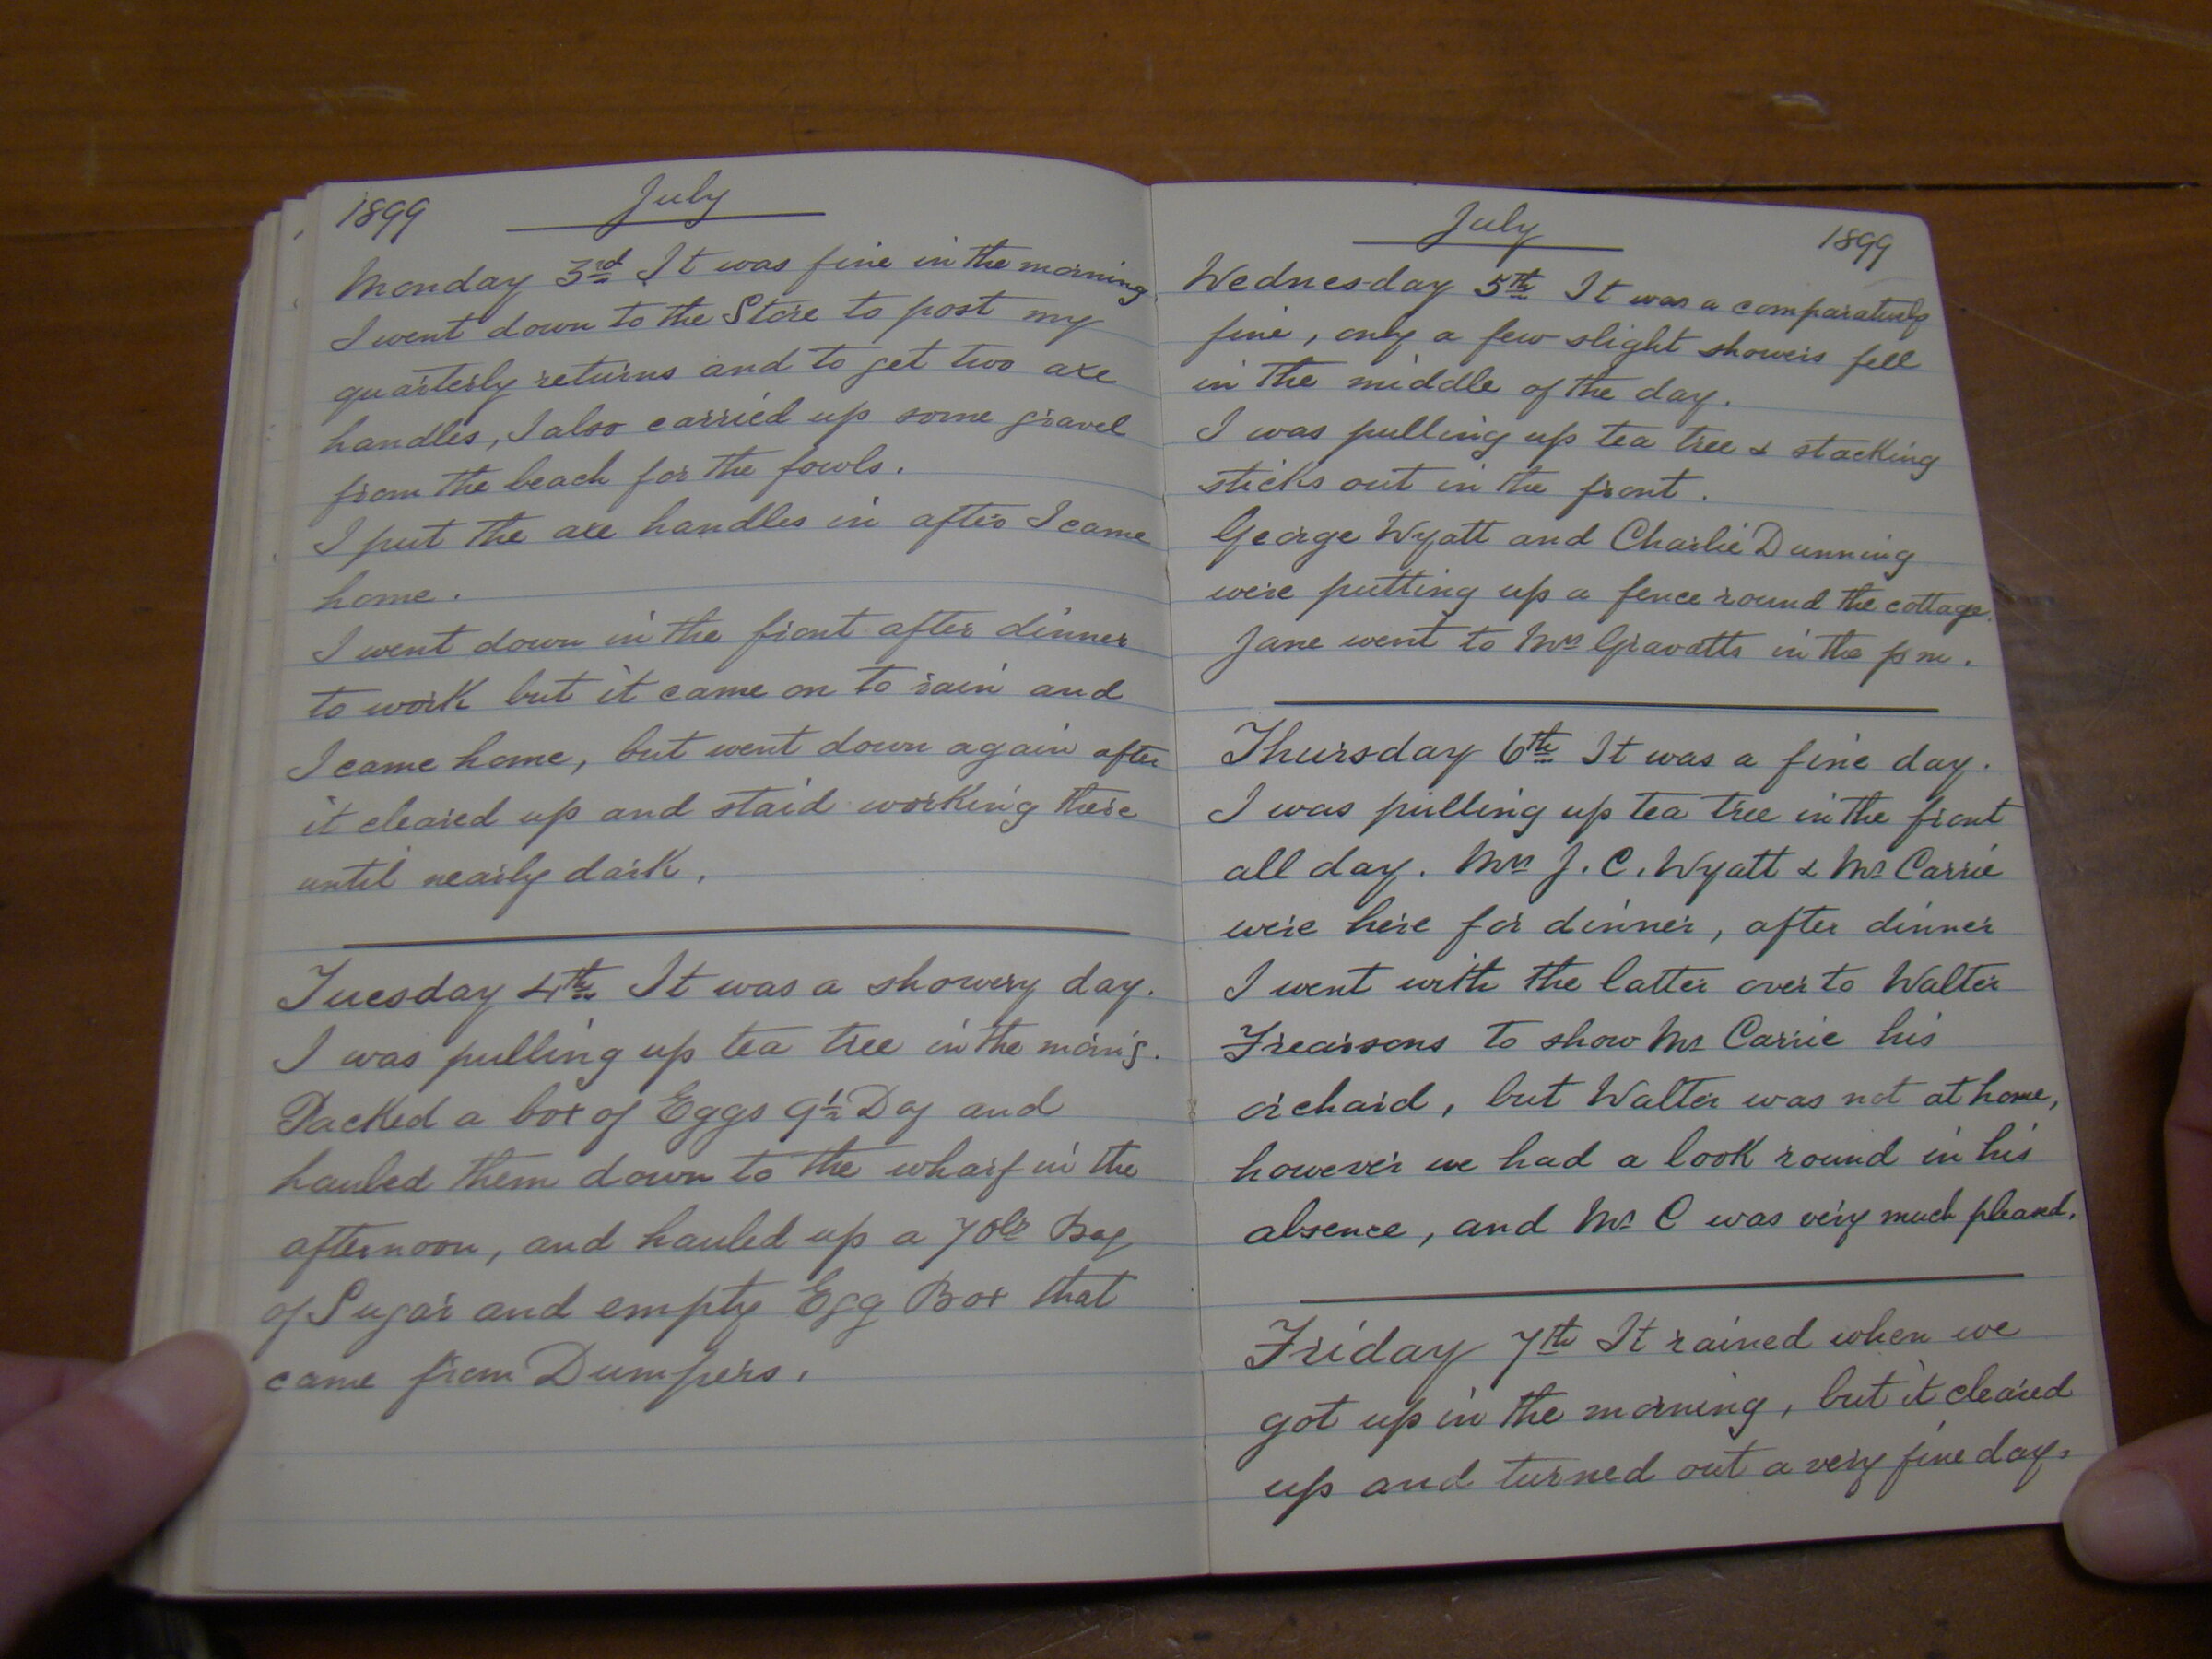 1899 July
Monday 3rd It was fine in the morning
I went down to the Store to post my
quarterly returns and to get two axe
handles, I also carried up some gravel
from the beach for the fowls.
I put the axe handles in after I came
home.
I went down in the front after dinner
to work but it came on to rain and
I came home, but went down again after
it cleared up and staid working there
until nearly dark.
Tuesday 4th It was a showery day.
I was pulling up tea tree in the morn'g.
Packed a box of Eggs 9½ Doz and
hauled them down to the wharf in the
afternoon, and hauled up a 70lb Bag
of Sugar and empty Egg Box that
came from Dumpers.
July 1899
Wednesday 5th It was a comparatively
fine, only a few slight showers fell
in the middle of the day.
I was pulling up tea tree & stacking
sticks out in the front.
George Wyatt and Charlie Dunning
were putting up a fence round the cottage.
Jane went to Mrs Gravatts in the pm.
Thursday 6th It was a fine day.
I was pulling up tea tree in the front
all day. Mrs J. C. Wyatt & Mr Carrie
were here for dinner, after dinner
I went with the latter over to Walter
Frearsons to show Mr Carrie his
orchard, but Walter was not at home,
however we had a look round in his
absence, and Mr C was very much pleased.
Friday 7th It rained when we
got up in the morning, but it cleared
up and turned out a very fine day.